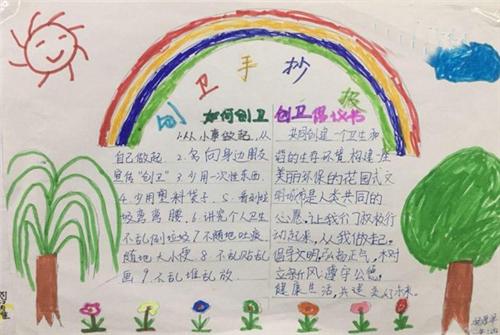 创卫手抄报
如何创卫
1.从小事做起,从
自己做起 2.多向身边朋友
宣传"创卫" 3.少用一次性东西
4.少用塑料袋子. 5.看到垃
圾弯弯腰 6.讲究个人卫生
不乱倒垃圾 7.不随地吐痰
随地大小便 8.不乱贴乱
画 9.不乱堆乱放
创卫倡议书
共同创建一个卫生和
谐的生存环境,构建生
美丽环保的花园式文
明城市是人类共同的
心愿,让我们积极行
动起来,从我做起,
倡导文明,弘扬正气,树
立新风,遵守公德,
健康生活,共建美好未来.